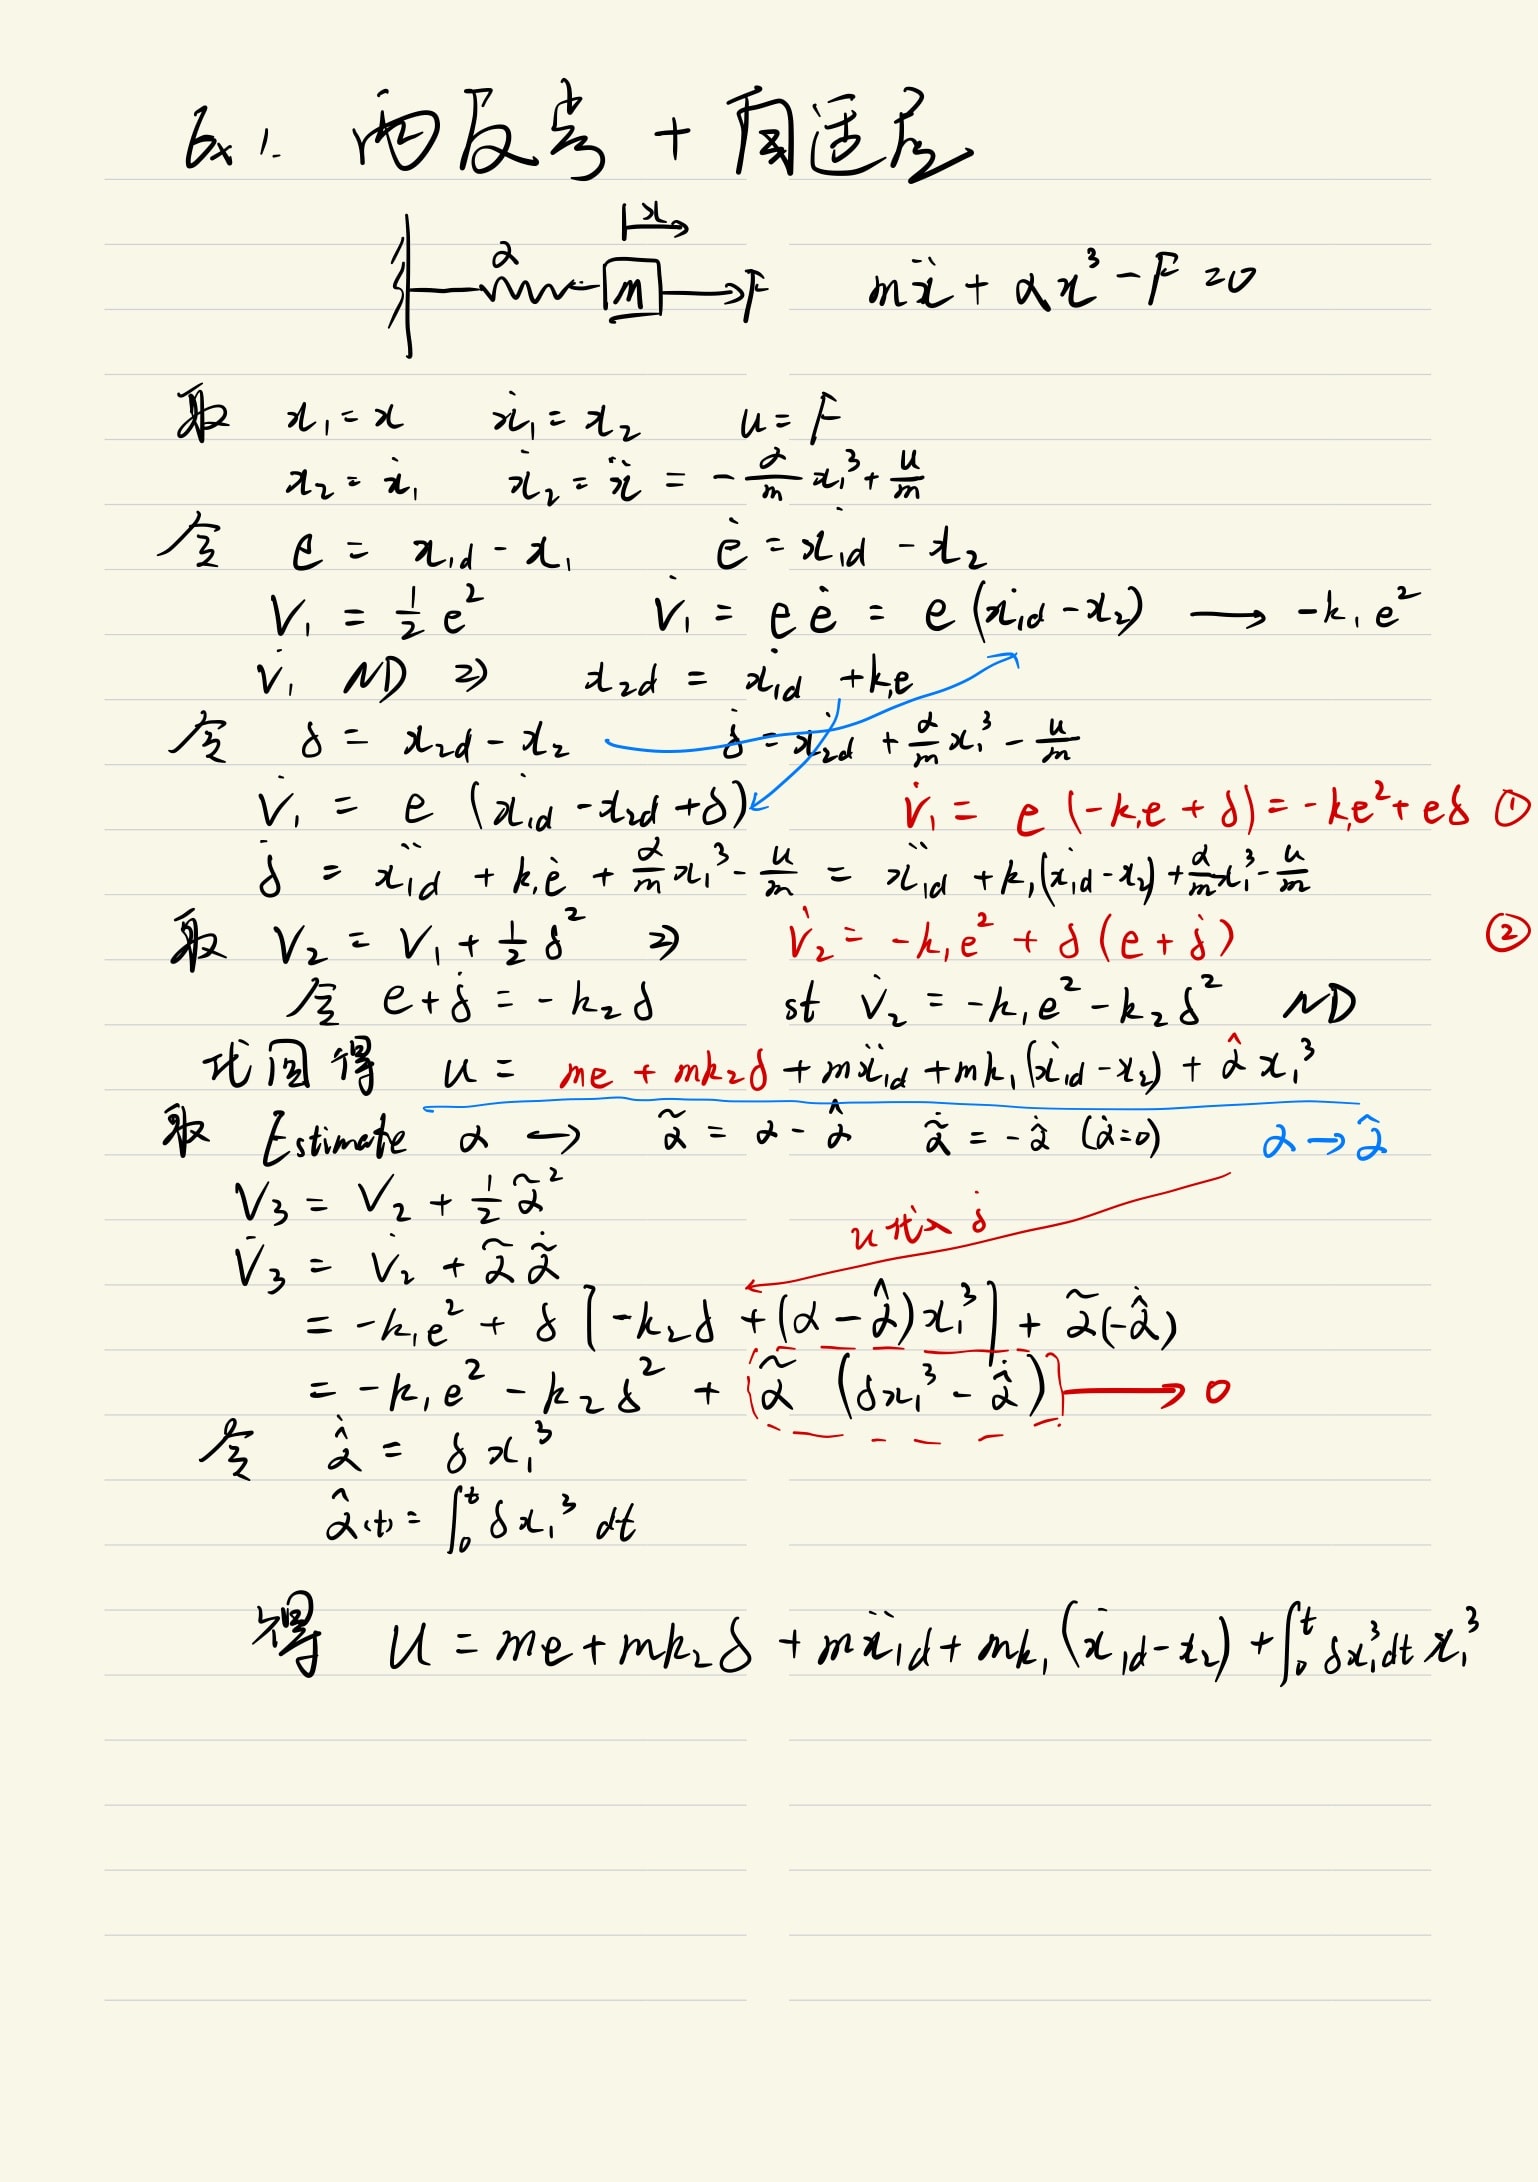 Ex 1. 两反步 + 自适应
x
α m F mẍ + αx³ - F = 0
取 x₁ = x ẋ₁ = x₂ u = F
x₂ = ẋ₁ ẋ₂ = ẍ = - α/m x₁³ + u/m
令 e = x₁d - x₁ ė = ẋ₁d - x₂
V₁ = 1/2 e² V̇₁ = e ė = e (ẋ₁d - x₂) → -k₁e²
V̇₁ ND ⇒ x₂d = ẋ₁d + k₁e
令 δ = x₂d - x₂ δ̇ = ẋ₂d + α/m x₁³ - u/m
V̇₁ = e (ẋ₁d - x₂d + δ) V̇₁ = e (-k₁e + δ) = -k₁e² + eδ ①
δ̇ = ẍ₁d + k₁ė + α/m x₁³ - u/m = ẍ₁d + k₁(ẋ₁d - x₂) + α/m x₁³ - u/m
取 V₂ = V₁ + 1/2 δ² ⇒ V̇₂ = -k₁e² + δ (e + δ̇) ②
令 e + δ̇ = -k₂δ st V̇₂ = -k₁e² - k₂δ² ND
代回得 u = me + mk₂δ + mẍ₁d + mk₁(ẋ₁d - x₂) + α̂ x₁³
取 Estimate α → α̃ = α - α̂ α̃̇ = -α̂̇ (α̇=0) α → α̂
V₃ = V₂ + 1/2 α̃²
u 代入 δ̇
V̇₃ = V̇₂ + α̃ α̃̇
= -k₁e² + δ [-k₂δ + (α - α̂)x₁³] + α̃(-α̂̇)
= -k₁e² - k₂δ² + α̃ (δx₁³ - α̂̇) → 0
令 α̂̇ = δx₁³
α̂(t) = ∫₀ᵗ δx₁³ dt
得 u = me + mk₂δ + mẍ₁d + mk₁(ẋ₁d - x₂) + ∫₀ᵗ δx₁³dt x₁³